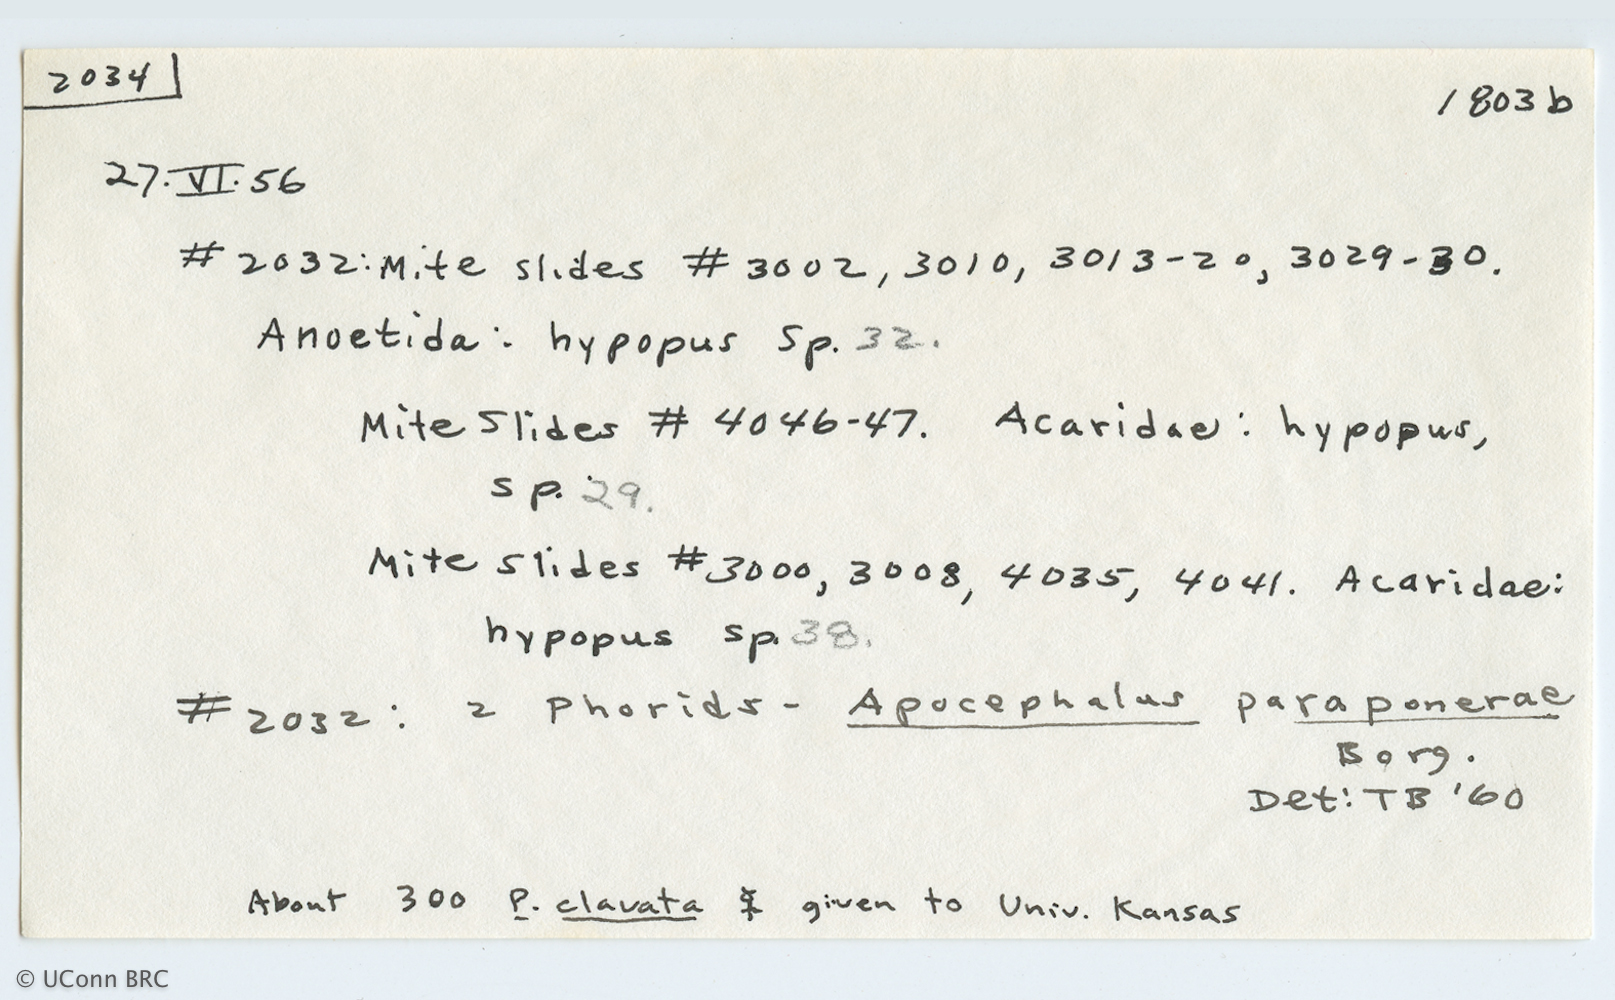 2034
1803b
27.VI.56
# 2032: Mite slides # 3002, 3010, 3013-20, 3029-30.
Anoetida: hypopus Sp. 32.
Mite Slides # 4046-47. Acaridae: hypopus,
sp. 29.
Mite slides #3000, 3008, 4035, 4041. Acaridae:
hypopus sp. 38.
# 2032: 2 Phorids - Apocephalus paraponerae
Borg.
Det: TB '60
About 300 P. clavata ☿ given to Univ. Kansas
© UConn BRC